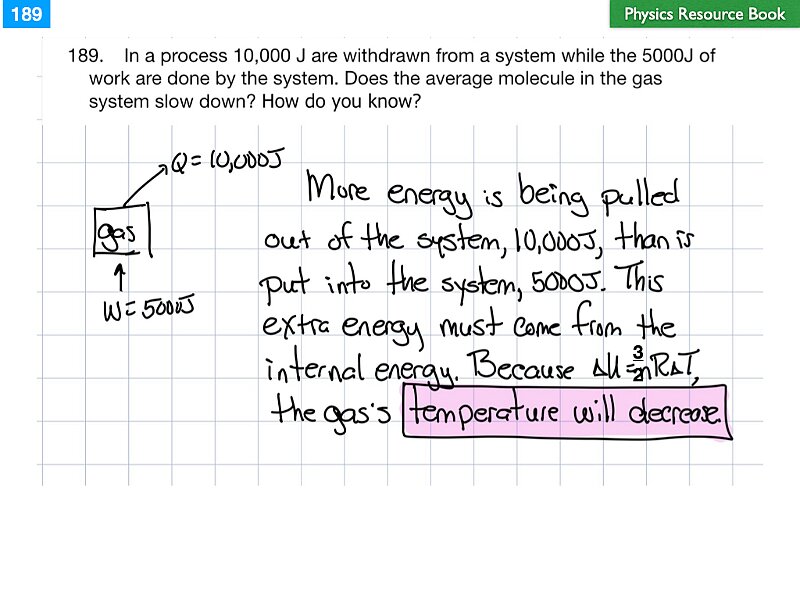 189
Physics Resource Book
189. In a process 10,000 J are withdrawn from a system while the 5000J of
work are done by the system. Does the average molecule in the gas
system slow down? How do you know?
Q = 10,000J
gas
W = 5000J
More energy is being pulled
out of the system, 10,000J, than is
put into the system, 5000J. This
extra energy must come from the
internal energy. Because ΔU = 3/2 nRΔT,
the gas's temperature will decrease.